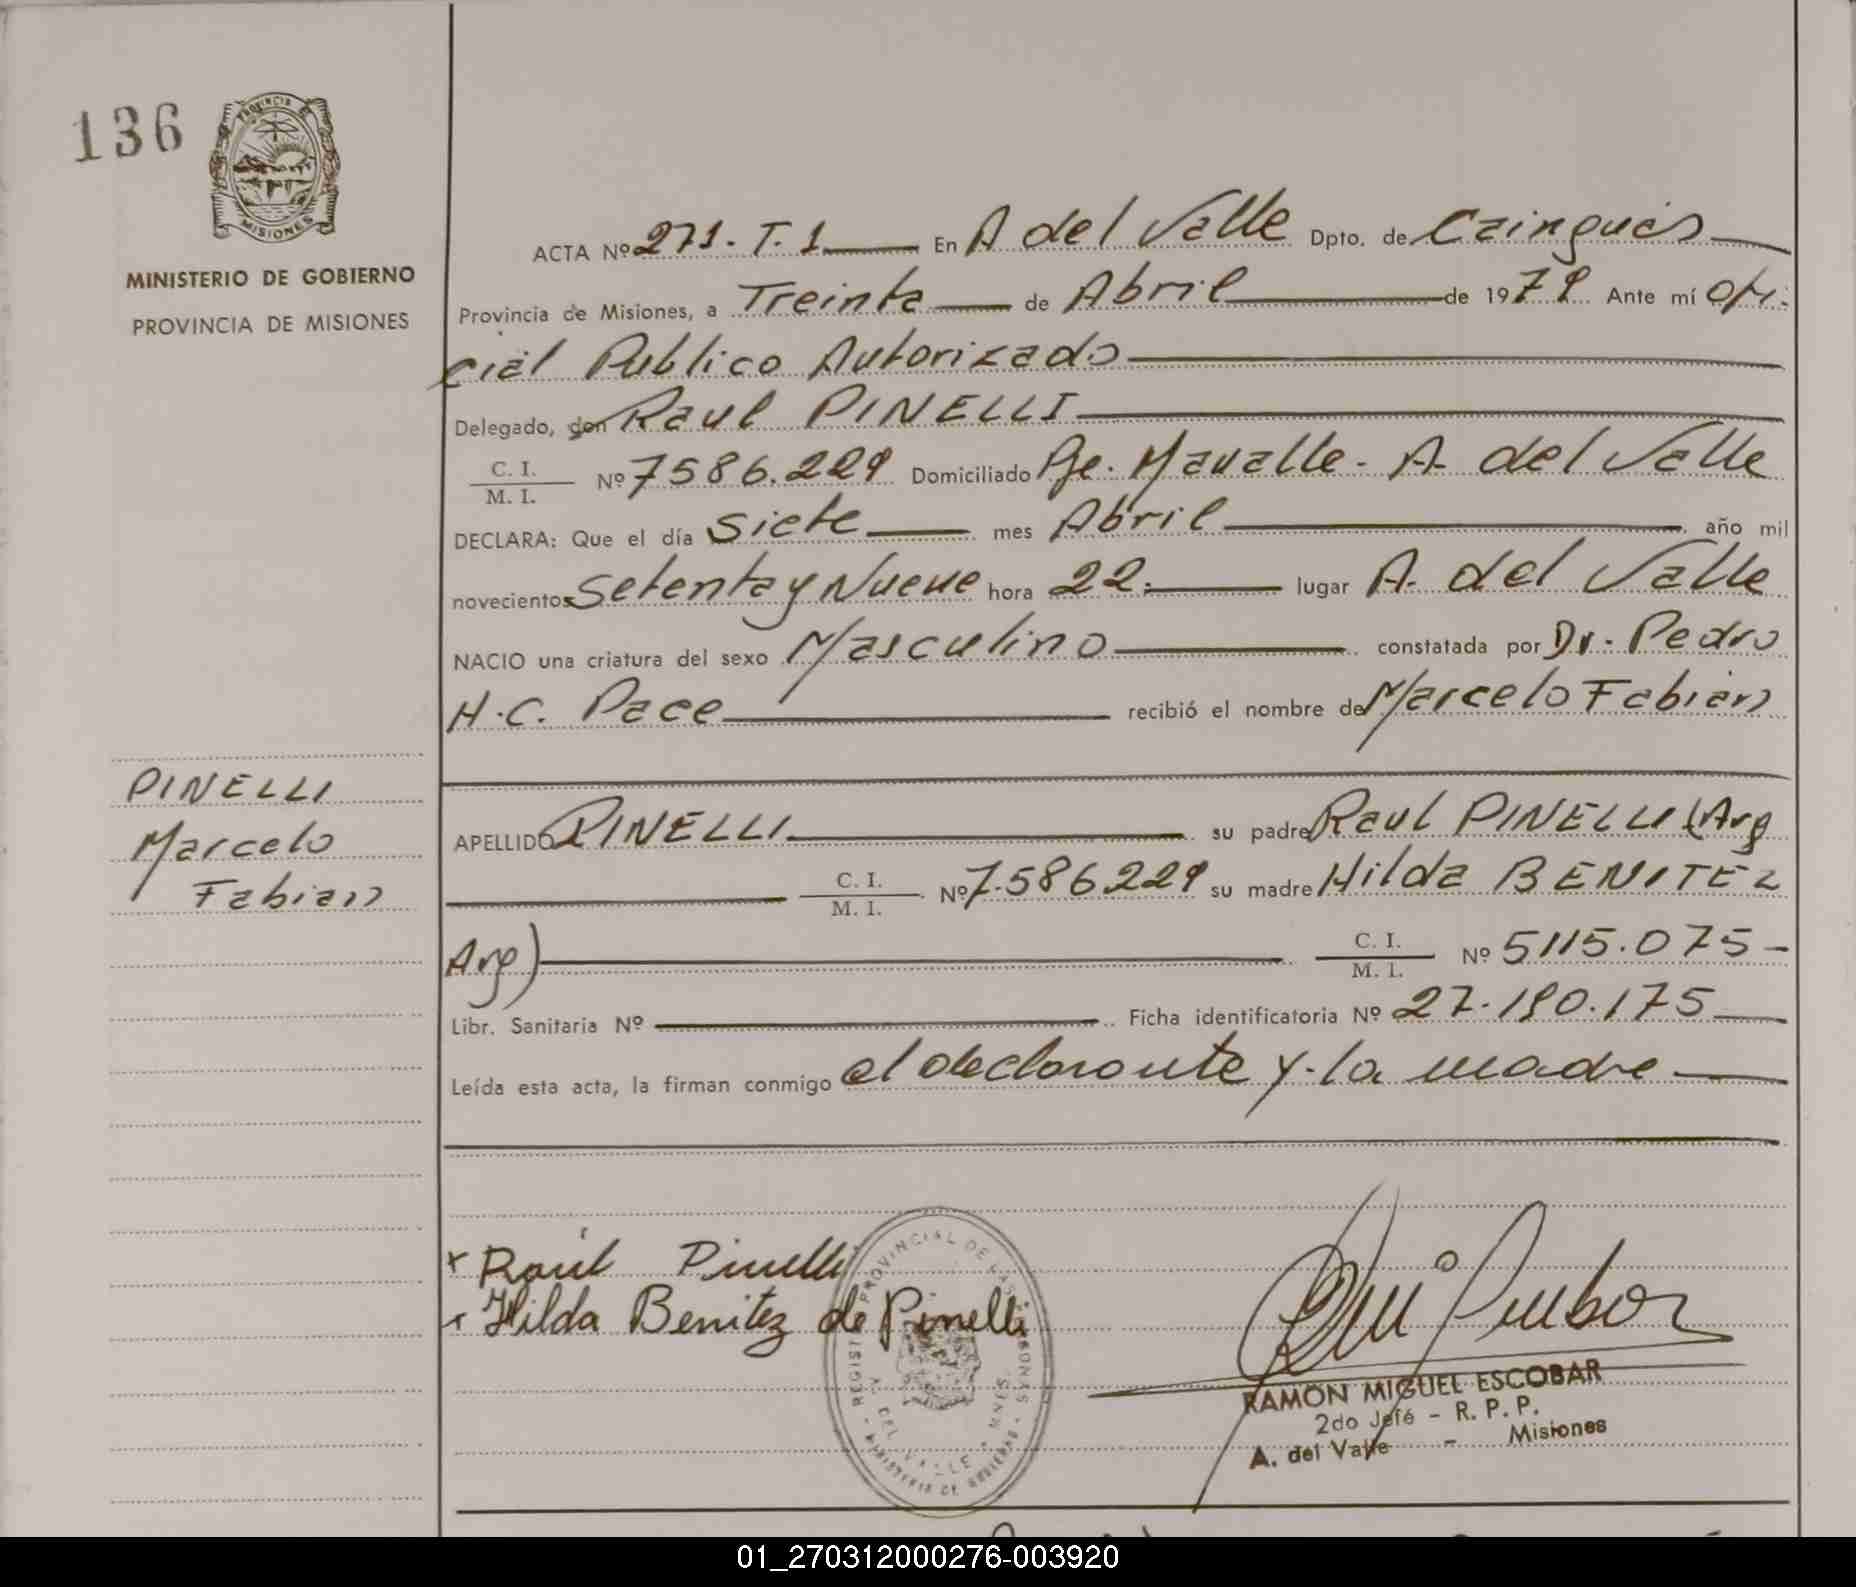 136
PROVINCIA DE
MISIONES
MINISTERIO DE GOBIERNO
PROVINCIA DE MISIONES
ACTA Nº 271. T. 1 En A del Valle Dpto. de Cainguás
Provincia de Misiones, a Treinta de Abril de 1979 Ante mí Ofi-
cial Publico Autorizado
Delegado, don Raul PINELLI
C. I.
M. I. Nº 7586.229 Domiciliado Pje. Mavalle - A. del Valle
DECLARA: Que el día Siete mes Abril año mil
novecientos Setenta y Nueve hora 22.- lugar A. del Valle
NACIO una criatura del sexo Masculino constatada por Dr. Pedro
H.C. Pace recibió el nombre de Marcelo Fabian
PINELLI
Marcelo
Fabian
APELLIDO PINELLI su padre Raul PINELLI (Arg
C. I.
M. I. Nº 7.586229 su madre Hilda BENITEZ
Arg) C. I.
M. I. Nº 5115.075-
Libr. Sanitaria Nº Ficha identificatoria Nº 27.190.175
Leída esta acta, la firman conmigo el declarante y la madre
x Raúl Pinelli
x Hilda Benitez de Pinelli
REGISTRO PROVINCIAL DE LAS PERSONAS
A. DEL VALLE - MNES.
MINISTERIO DE GOBIERNO
RAMON MIGUEL ESCOBAR
2do Jefe - R. P. P.
A. del Valle - Misiones
01_270312000276-003920